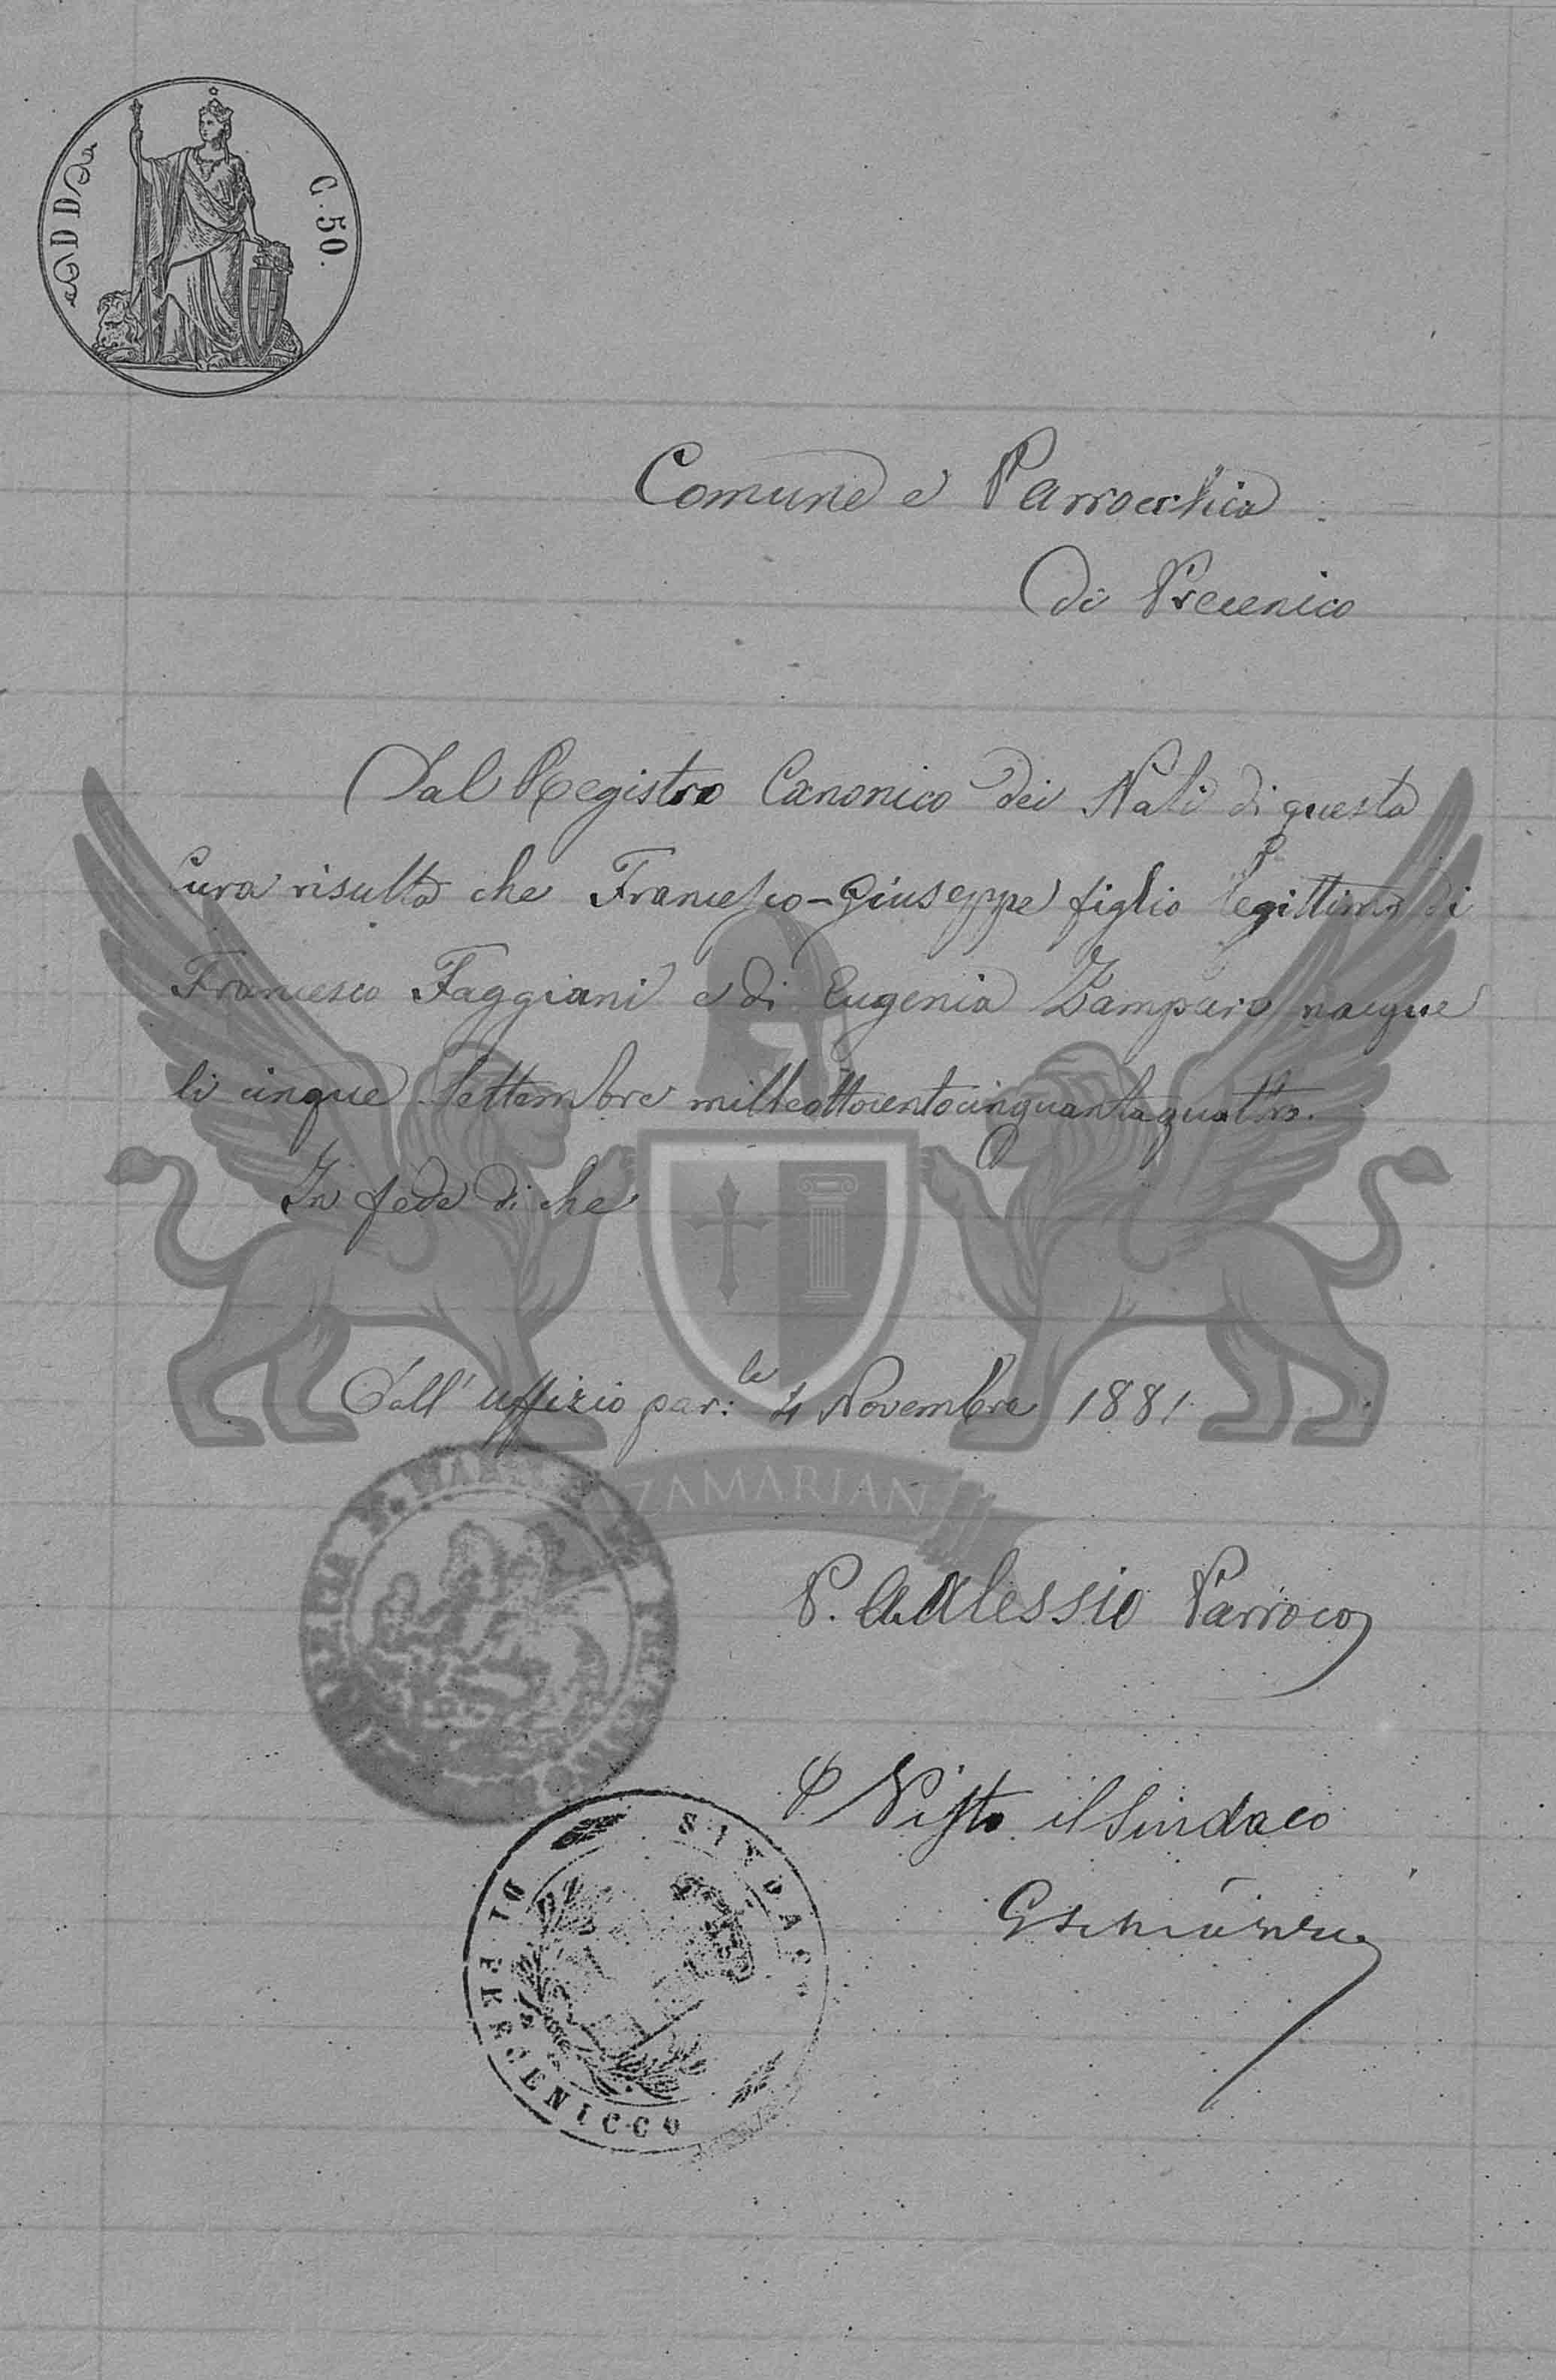 C. 50.
Comune e Parrochia
di Precenico
Dal Registro Canonico dei Nati di questa
Cura risulta che Francesco-Giuseppe figlio legittimo di
Francesco Faggiani e di Eugenia Zamparo nacque
li cinque Settembre milleottocentocinquantaquattro.
In fede di che
Dall' uffizio par:le 4 Novembre 1881
ZAMARIAN
P. Alessio Parroco
Visto il Sindaco
SINDACO
DI PRECENICCO